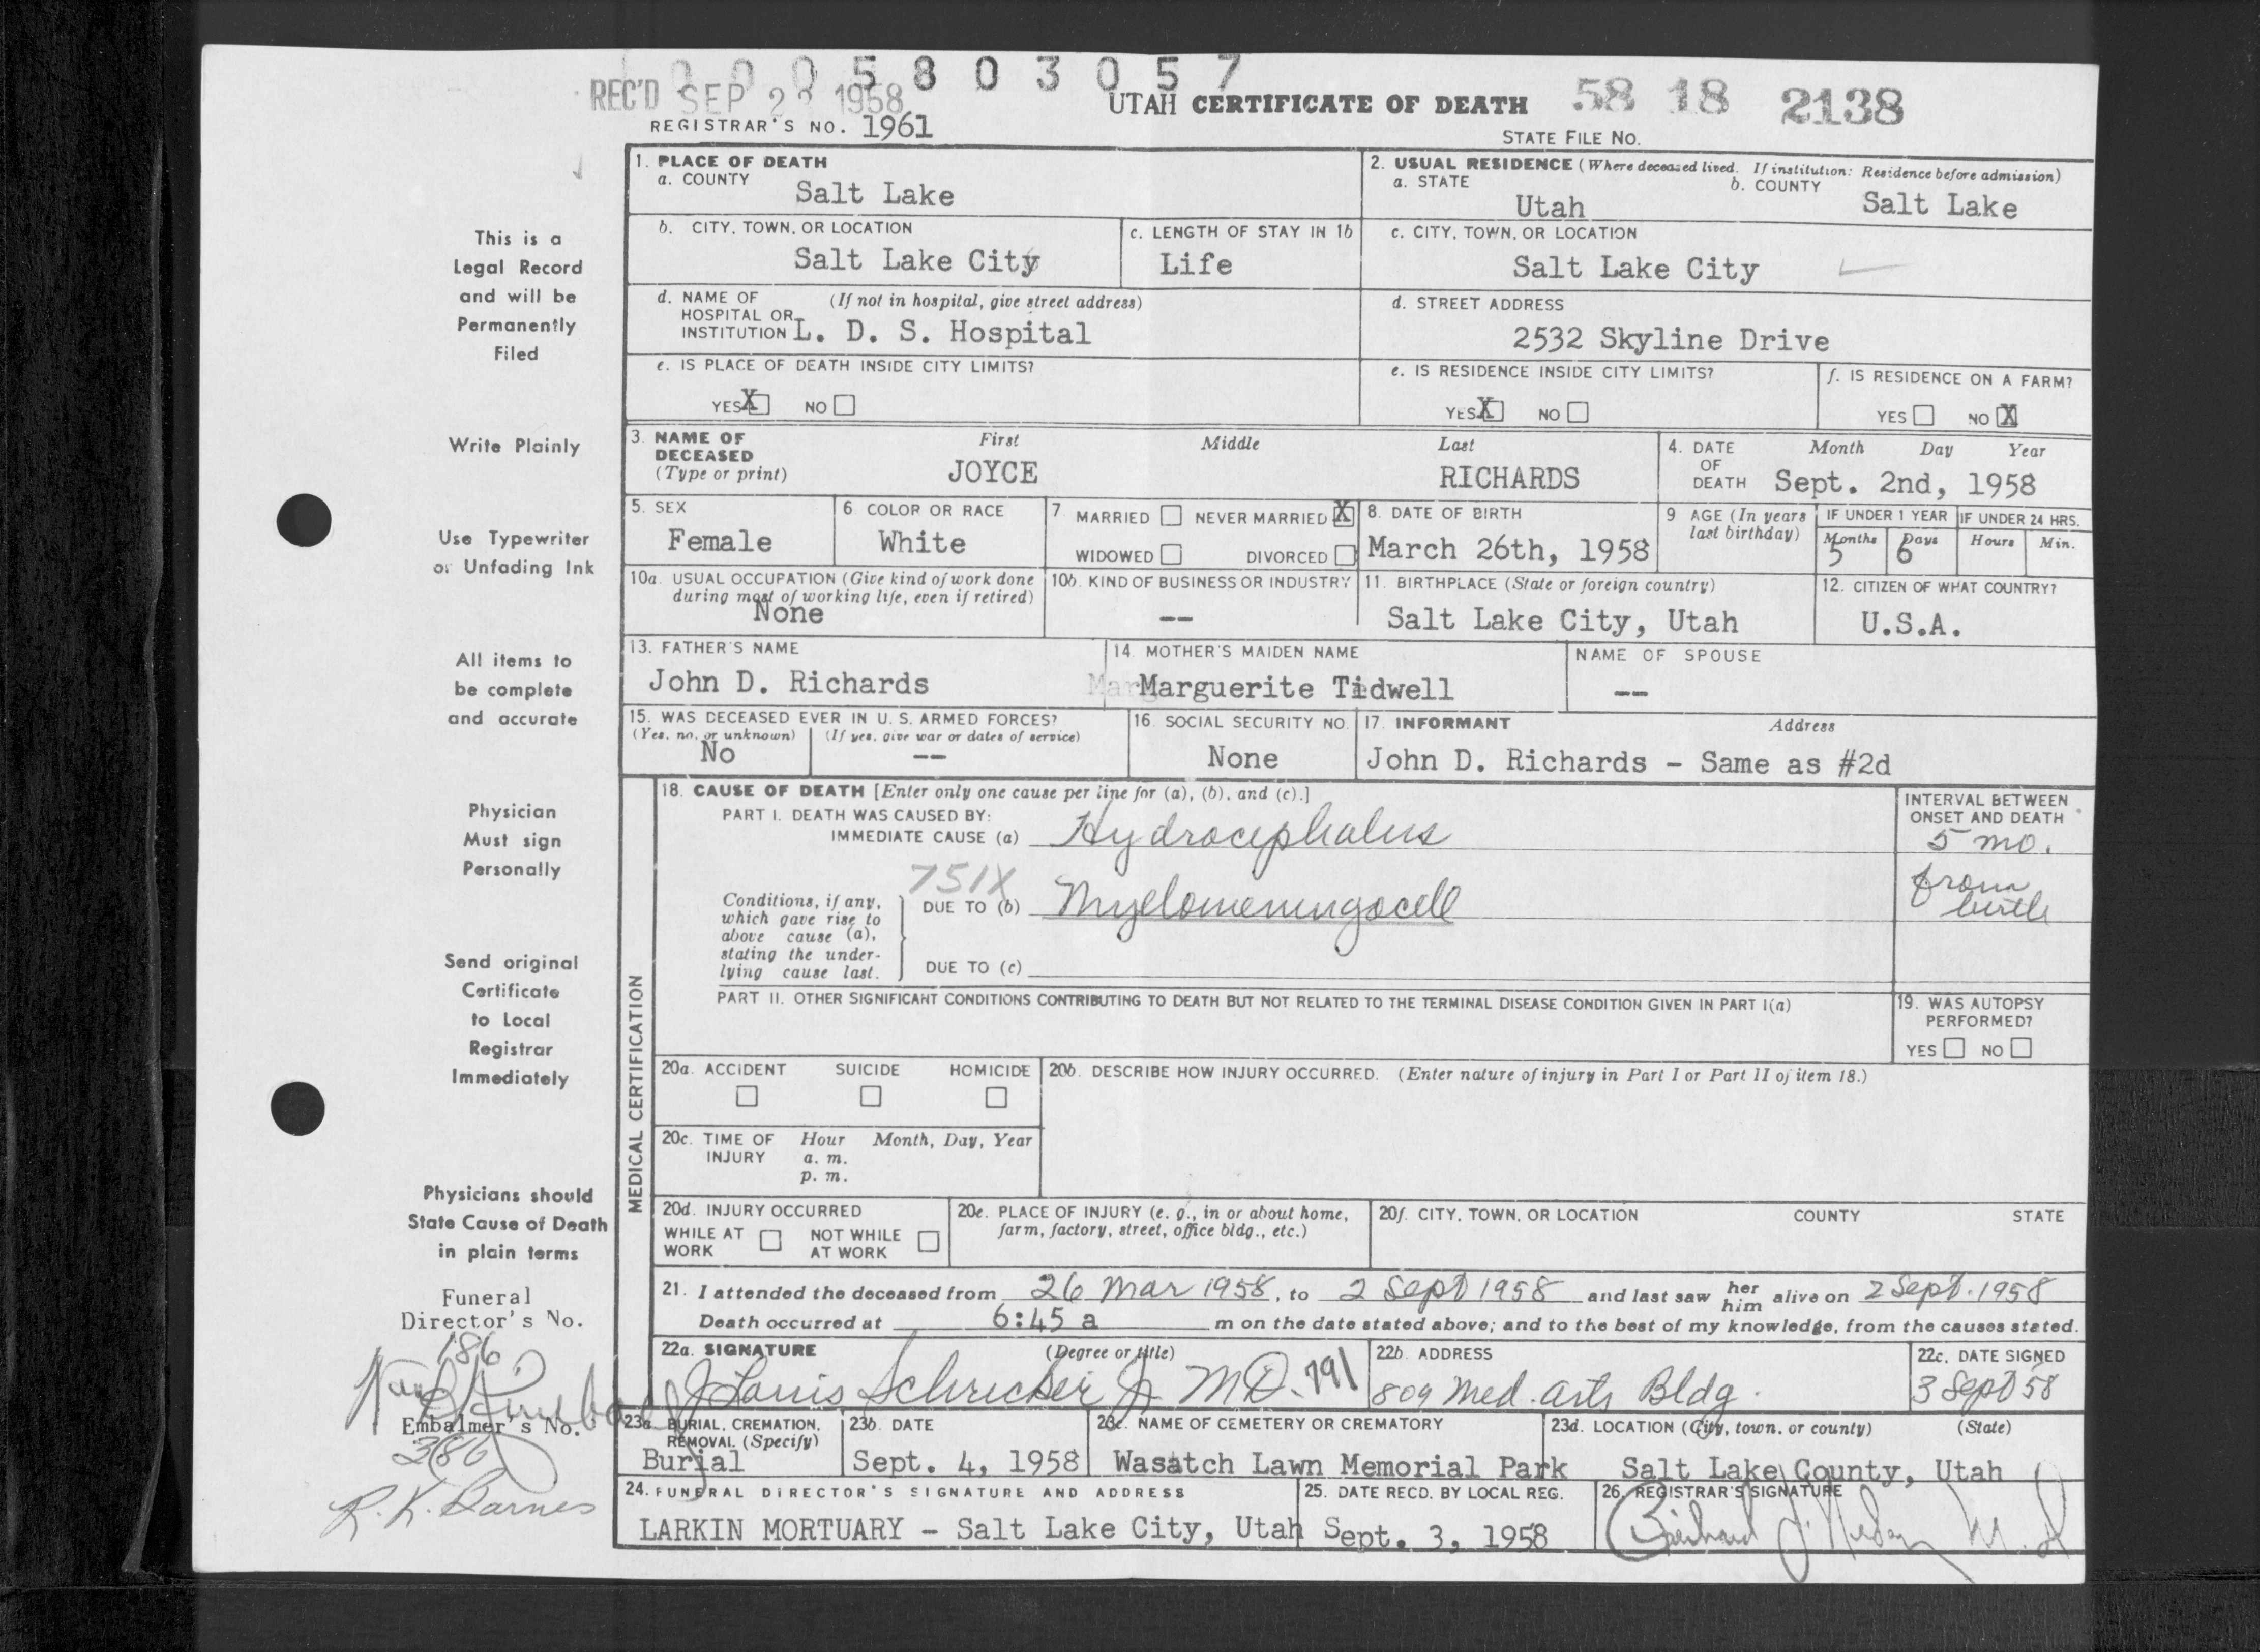 0 0 0 5 8 0 3 0 5 7
REC'D SEP 23 1958 UTAH CERTIFICATE OF DEATH 58 18 2138
REGISTRAR'S NO. 1961 STATE FILE NO.
This is a
Legal Record
and will be
Permanently
Filed
Write Plainly
Use Typewriter
or Unfading Ink
All items to
be complete
and accurate
Physician
Must sign
Personally
Send original
Certificate
to Local
Registrar
Immediately
Physicians should
State Cause of Death
in plain terms
Funeral
Director's No.
186
Embalmer's No.
386
R. K. Barnes
1. PLACE OF DEATH
a. COUNTY
Salt Lake
2. USUAL RESIDENCE (Where deceased lived. If institution: Residence before admission)
a. STATE b. COUNTY
Utah Salt Lake
b. CITY, TOWN, OR LOCATION
Salt Lake City
c. LENGTH OF STAY IN 1b
Life
c. CITY, TOWN, OR LOCATION
Salt Lake City
d. NAME OF (If not in hospital, give street address)
HOSPITAL OR
INSTITUTION L. D. S. Hospital
d. STREET ADDRESS
2532 Skyline Drive
e. IS PLACE OF DEATH INSIDE CITY LIMITS?
YES X NO
e. IS RESIDENCE INSIDE CITY LIMITS?
YES X NO
f. IS RESIDENCE ON A FARM?
YES NO X
3. NAME OF First Middle Last
DECEASED
(Type or print) JOYCE RICHARDS
4. DATE Month Day Year
OF
DEATH Sept. 2nd, 1958
5. SEX
Female
6 COLOR OR RACE
White
7. MARRIED NEVER MARRIED X
WIDOWED DIVORCED
8. DATE OF BIRTH
March 26th, 1958
9 AGE (In years
last birthday)
IF UNDER 1 YEAR IF UNDER 24 HRS.
Months Days Hours Min.
5 6
10a. USUAL OCCUPATION (Give kind of work done
during most of working life, even if retired)
None
10b. KIND OF BUSINESS OR INDUSTRY
--
11. BIRTHPLACE (State or foreign country)
Salt Lake City, Utah
12. CITIZEN OF WHAT COUNTRY?
U.S.A.
13. FATHER'S NAME
John D. Richards
14. MOTHER'S MAIDEN NAME
Marguerite Tidwell
NAME OF SPOUSE
--
15. WAS DECEASED EVER IN U. S. ARMED FORCES?
(Yes, no, or unknown) (If yes, give war or dates of service)
No --
16. SOCIAL SECURITY NO.
None
17. INFORMANT Address
John D. Richards - Same as #2d
MEDICAL CERTIFICATION
18. CAUSE OF DEATH [Enter only one cause per line for (a), (b), and (c).]
PART I. DEATH WAS CAUSED BY:
IMMEDIATE CAUSE (a) Hydrocephalus
INTERVAL BETWEEN
ONSET AND DEATH
5 mo.
751X
Conditions, if any,
which gave rise to
above cause (a),
stating the under-
lying cause last.
DUE TO (b) Myelomeningocele
from
birth
DUE TO (c)
PART II. OTHER SIGNIFICANT CONDITIONS CONTRIBUTING TO DEATH BUT NOT RELATED TO THE TERMINAL DISEASE CONDITION GIVEN IN PART I(a)
19. WAS AUTOPSY
PERFORMED?
YES NO
20a. ACCIDENT SUICIDE HOMICIDE
20b. DESCRIBE HOW INJURY OCCURRED. (Enter nature of injury in Part I or Part II of item 18.)
20c. TIME OF Hour Month, Day, Year
INJURY a. m.
p. m.
20d. INJURY OCCURRED
WHILE AT NOT WHILE
WORK AT WORK
20e. PLACE OF INJURY (e. g., in or about home,
farm, factory, street, office bldg., etc.)
20f. CITY, TOWN, OR LOCATION COUNTY STATE
21. I attended the deceased from 26 Mar 1958, to 2 Sept 1958 and last saw her him alive on 2 Sept. 1958
Death occurred at 6:45 a m on the date stated above; and to the best of my knowledge, from the causes stated.
22a. SIGNATURE (Degree or title)
J Louis Schricker Jr MD. 791
22b. ADDRESS
809 Med. Arts Bldg.
22c. DATE SIGNED
3 Sept 58
23a. BURIAL, CREMATION,
REMOVAL (Specify)
Burial
23b. DATE
Sept. 4, 1958
23c. NAME OF CEMETERY OR CREMATORY
Wasatch Lawn Memorial Park
23d. LOCATION (City, town, or county) (State)
Salt Lake County, Utah
24. FUNERAL DIRECTOR'S SIGNATURE AND ADDRESS
LARKIN MORTUARY - Salt Lake City, Utah
25. DATE RECD. BY LOCAL REG.
Sept. 3, 1958
26. REGISTRAR'S SIGNATURE
Richard J. Nelson M.D